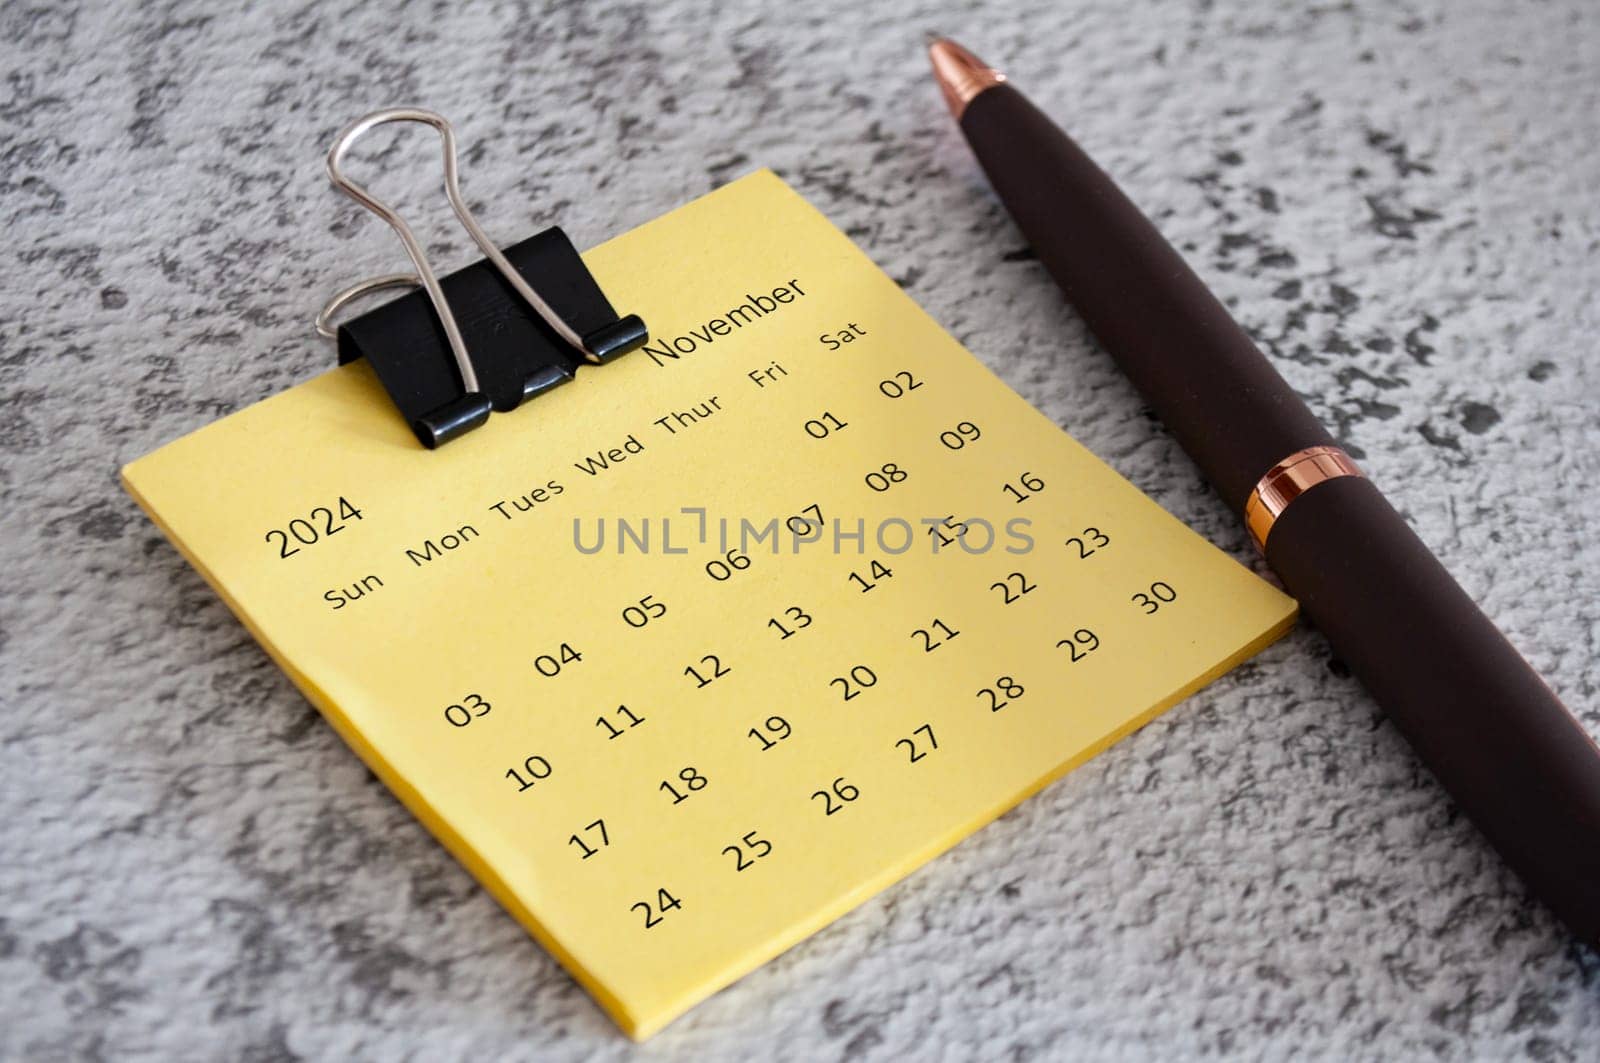 2024 November
Sun Mon Tues Wed Thur Fri Sat
01 02
03 04 05 06 07 08 09
10 11 12 13 14 15 16
17 18 19 20 21 22 23
24 25 26 27 28 29 30
UNLIMPHOTOS